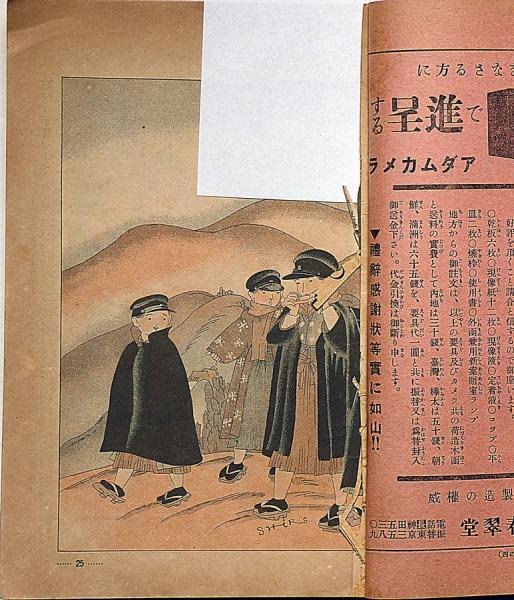 さなさる方に
で進呈する
アダムカメラ
好評を頂くこと請合と信ずるので御座います。
〇乾板六枚〇現像紙十二枚〇現像液〇定着液〇コップ〇平
皿二枚〇燒枠〇使用書〇外函兼用新案暗室ランプ
地方からの御註文は、以上の要具及びカメラ共の荷造木函
と送料の實費として内地は三十錢、臺灣、樺太は五十錢、朝
鮮、滿洲は六十五錢を、要具代一圓と共に振替又は爲替封入
御送金下さい。代金引換は御斷り申します。
▼禮辭感謝狀等實に如山!!
製造の權威
春翠堂
電話神田三五三〇
振替東京三五八九
(四の
SHIRO
25